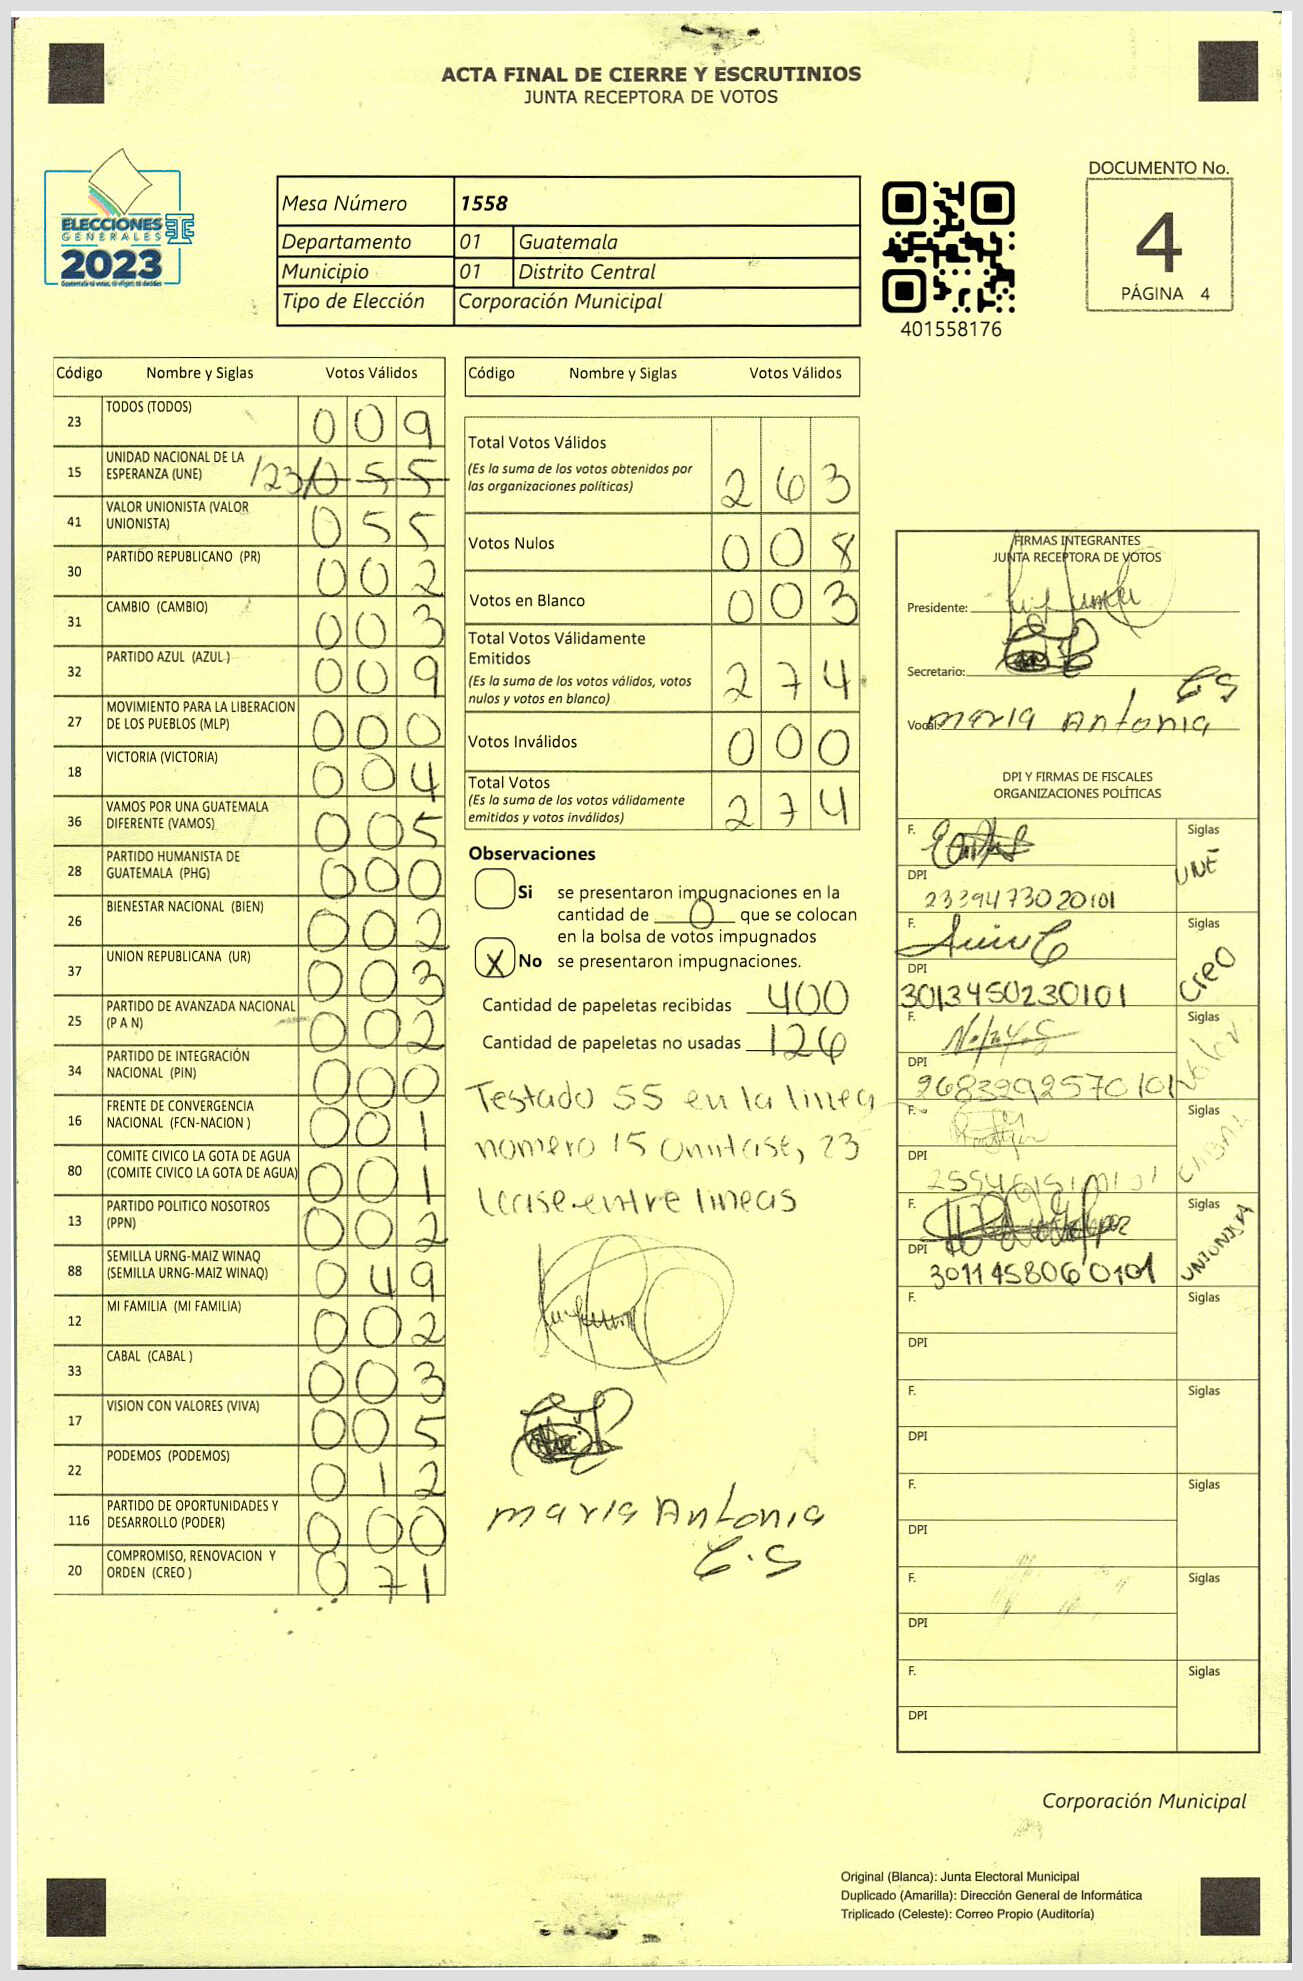 ACTA FINAL DE CIERRE Y ESCRUTINIOS
JUNTA RECEPTORA DE VOTOS
ELECCIONES
GENERALES
2023
Mesa Número 1558
Departamento 01 Guatemala
Municipio 01 Distrito Central
Tipo de Elección Corporación Municipal
401558176
DOCUMENTO No.
4
PÁGINA 4
Código Nombre y Siglas Votos Válidos
23 TODOS (TODOS) 0 0 9
15 UNIDAD NACIONAL DE LA
ESPERANZA (UNE) 23 0 5 5
41 VALOR UNIONISTA (VALOR
UNIONISTA) 0 5 5
30 PARTIDO REPUBLICANO (PR) 0 0 2
31 CAMBIO (CAMBIO) 0 0 3
32 PARTIDO AZUL (AZUL ) 0 0 9
27 MOVIMIENTO PARA LA LIBERACION
DE LOS PUEBLOS (MLP) 0 0 0
18 VICTORIA (VICTORIA) 0 0 4
36 VAMOS POR UNA GUATEMALA
DIFERENTE (VAMOS) 0 0 5
28 PARTIDO HUMANISTA DE
GUATEMALA (PHG) 0 0 0
26 BIENESTAR NACIONAL (BIEN) 0 0 2
37 UNION REPUBLICANA (UR) 0 0 3
25 PARTIDO DE AVANZADA NACIONAL
(P A N) 0 0 2
34 PARTIDO DE INTEGRACIÓN
NACIONAL (PIN) 0 0 0
16 FRENTE DE CONVERGENCIA
NACIONAL (FCN-NACION ) 0 0 1
80 COMITE CIVICO LA GOTA DE AGUA
(COMITE CIVICO LA GOTA DE AGUA) 0 0 1
13 PARTIDO POLITICO NOSOTROS
(PPN) 0 0 2
88 SEMILLA URNG-MAIZ WINAQ
(SEMILLA URNG-MAIZ WINAQ) 0 4 9
12 MI FAMILIA (MI FAMILIA) 0 0 2
33 CABAL (CABAL ) 0 0 3
17 VISION CON VALORES (VIVA) 0 0 5
22 PODEMOS (PODEMOS) 0 1 2
116 PARTIDO DE OPORTUNIDADES Y
DESARROLLO (PODER) 0 0 0
20 COMPROMISO, RENOVACION Y
ORDEN (CREO ) 0 7 1
Código Nombre y Siglas Votos Válidos
Total Votos Válidos
(Es la suma de los votos obtenidos por
las organizaciones políticas) 2 6 3
Votos Nulos 0 0 8
Votos en Blanco 0 0 3
Total Votos Válidamente
Emitidos
(Es la suma de los votos válidos, votos
nulos y votos en blanco) 2 7 4
Votos Inválidos 0 0 0
Total Votos
(Es la suma de los votos válidamente
emitidos y votos inválidos) 2 7 4
Observaciones
Si se presentaron impugnaciones en la
cantidad de 0 que se colocan
en la bolsa de votos impugnados
X No se presentaron impugnaciones.
Cantidad de papeletas recibidas 400
Cantidad de papeletas no usadas 126
Testado 55 en la linea
numero 15 Omitase, 23
lease entre lineas
maria Antonia
C.S
FIRMAS INTEGRANTES
JUNTA RECEPTORA DE VOTOS
Presidente:
Secretario:
CS
Vocal: maria Antonia
DPI Y FIRMAS DE FISCALES
ORGANIZACIONES POLÍTICAS
F. Siglas
UNE
DPI
2339473020101
F. Siglas
CREO
DPI
3013450230101
F. Siglas
Valor
DPI
2683292570101
F. Siglas
CABAL
DPI
F. Siglas
UNIONISTA
DPI
3011458060101
F. Siglas
DPI
F. Siglas
DPI
F. Siglas
DPI
F. Siglas
DPI
F. Siglas
DPI
Corporación Municipal
Original (Blanca): Junta Electoral Municipal
Duplicado (Amarilla): Dirección General de Informática
Triplicado (Celeste): Correo Propio (Auditoría)